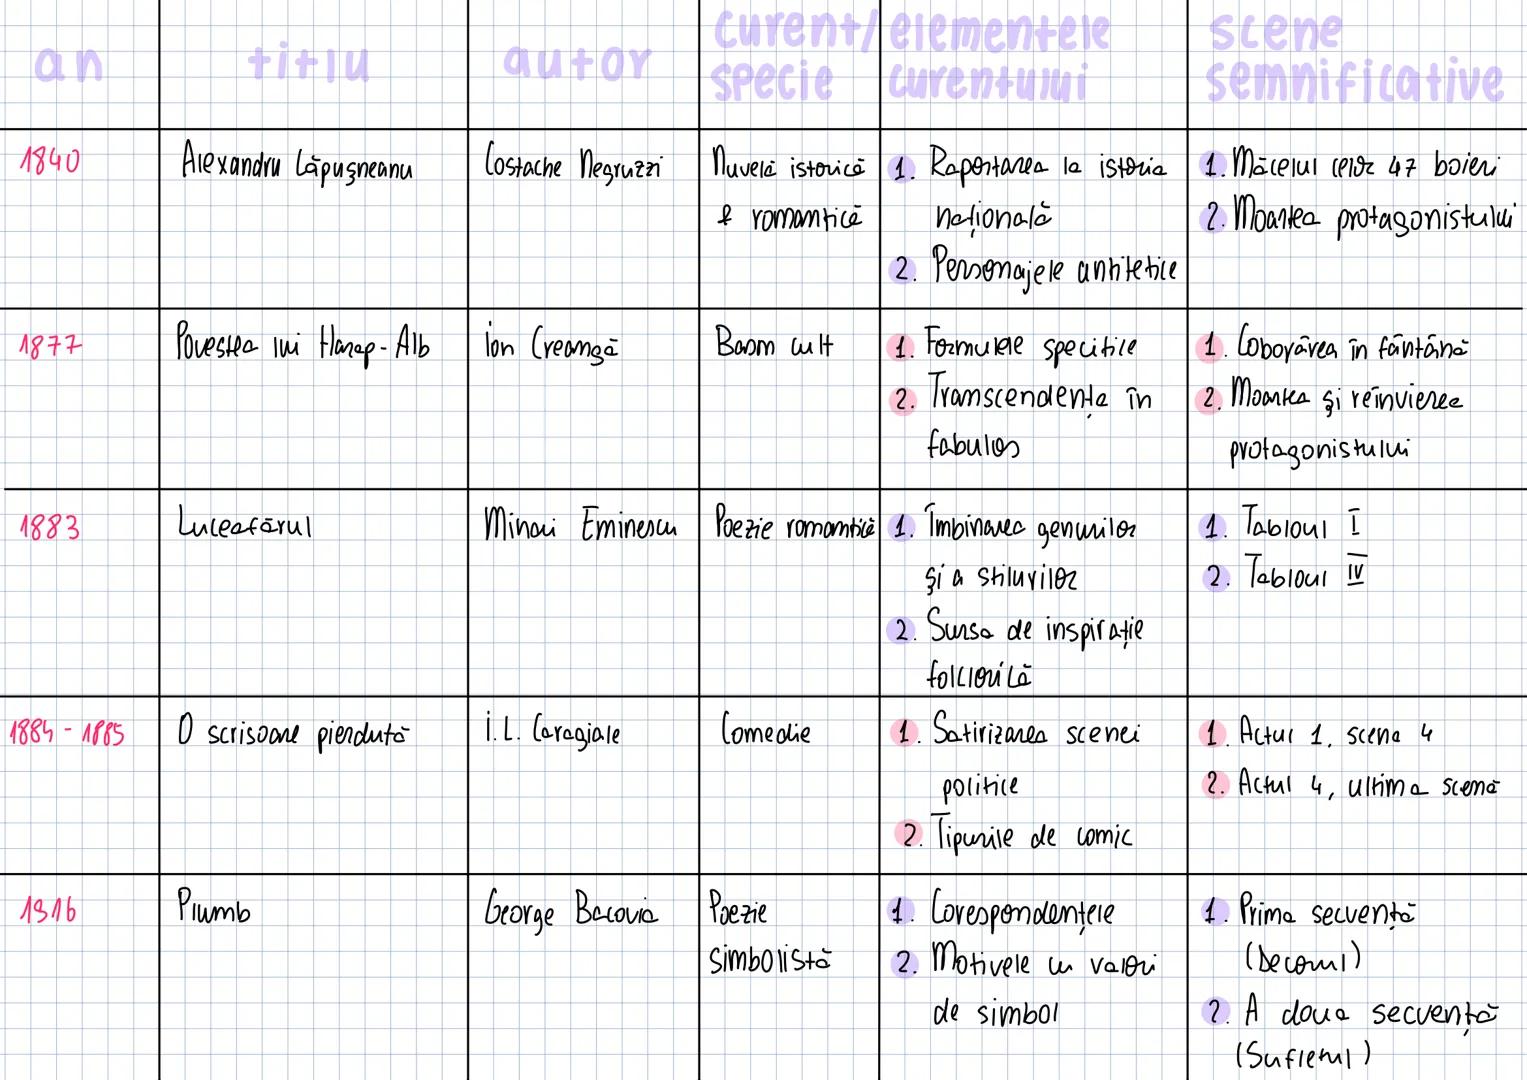 an
titlu
autor
curent/
specie
elementele
curentului
scene
semnificative
1840
Alexandru Lăpușneanu
Costache Negruzzi
Nuvelă istorică
& romantică
1. Raportarea la istoria
națională
2. Personajele antitetice
1. Măcelul celor 47 boieri
2. Moartea protagonistului
1877
Povestea lui Harap-Alb
Ion Creangă
Basm cult
1. Formulele specifice
2. Transcendența în
fabulos
1. Coborârea în fântână
2. Moartea și reînvierea
protagonistului
1883
Luceafărul
Mihai Eminescu
Poezie romantică
1. Îmbinarea genurilor
și a stilurilor
2. Sursa de inspirație
folclorică
1. Tabloul I
2. Tabloul IV
1884 - 1885
O scrisoare pierdută
I.L. Caragiale
Comedie
1. Satirizarea scenei
politice
2. Tipurile de comic
1. Actul 1, scena 4
2. Actul 4, ultima scenă
1916
Plumb
George Bacovia
Poezie
simbolistă
1. Corespondențele
2. Motivele cu valori
de simbol
1. Prima secvență
(Decorul)
2. A doua secvență
(Sufletul)